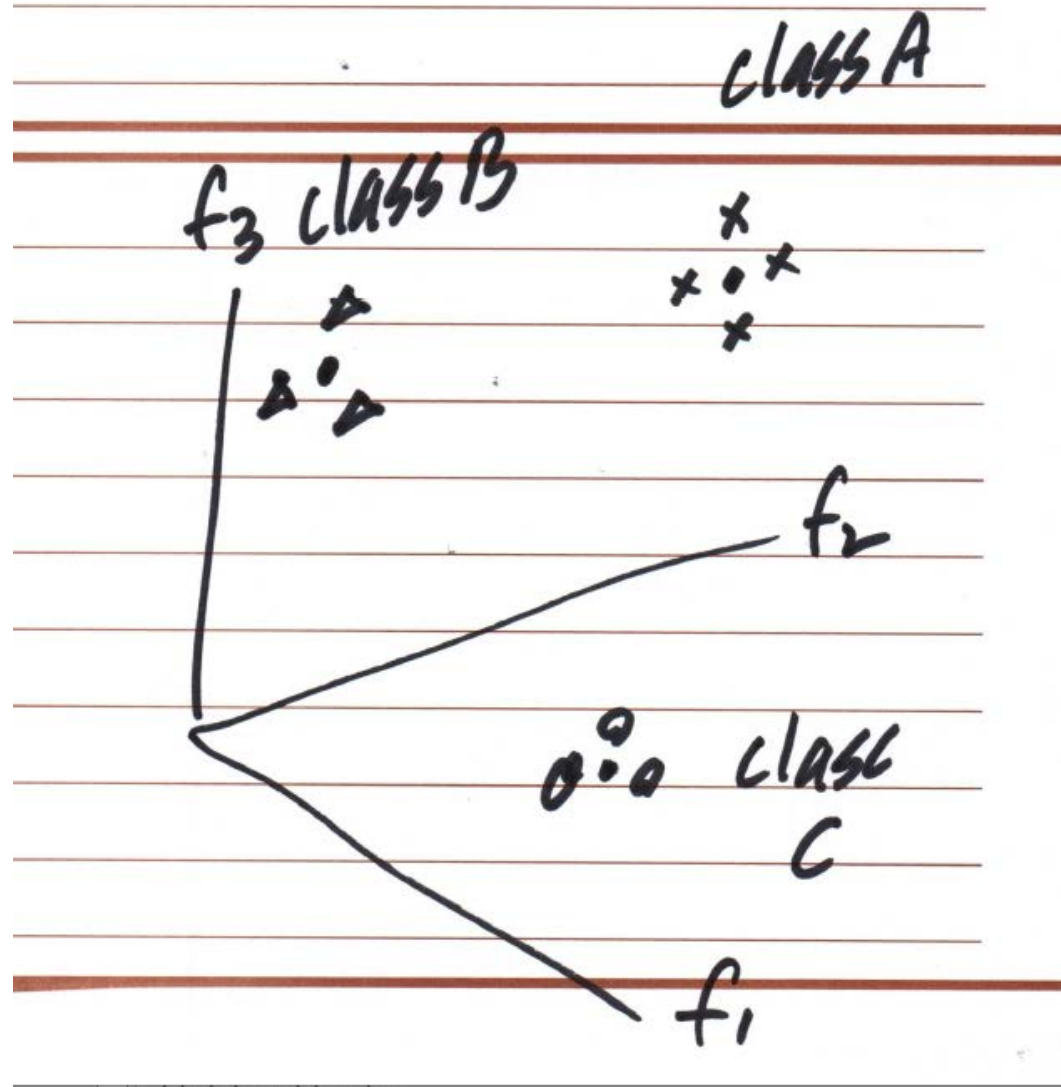 class A
f3 class B
f2
class
C
f1